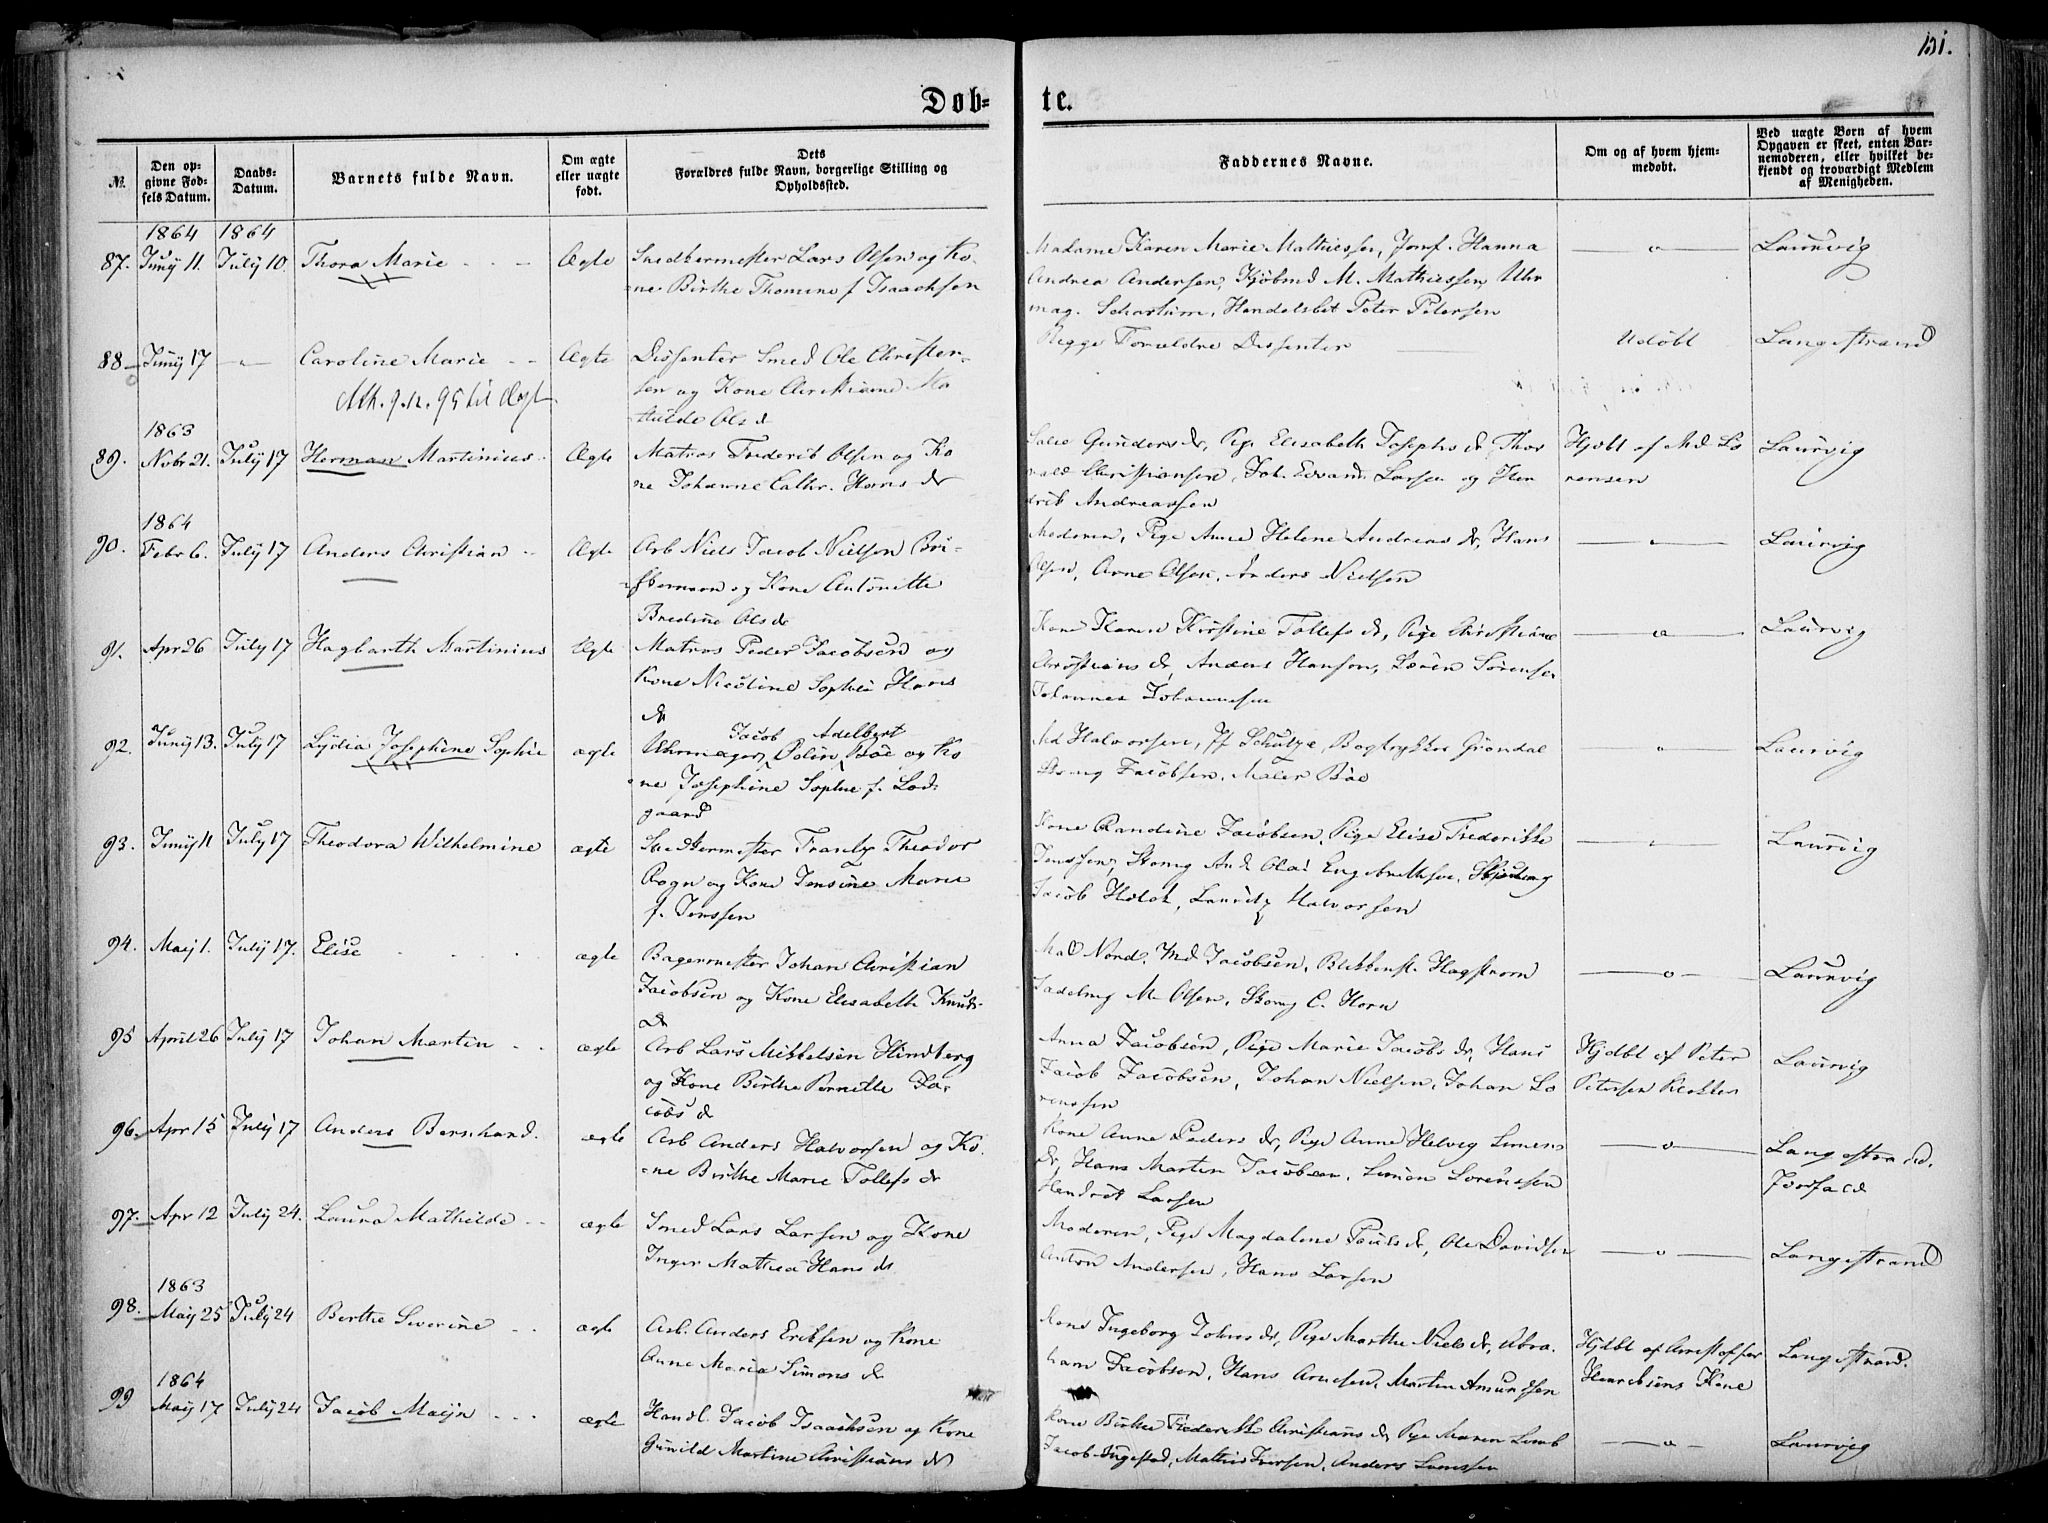 131.
Døb=
te.
№.
Den op=
givne Fød=
sels Datum.
Daabs=
Datum.
Barnets fulde Navn.
Om ægte
eller uægte
født.
Dets
Forældres fulde Navn, borgerlige Stilling og
Opholdssted.
Faddernes Navne.
Om og af hvem hjem=
medøbt.
Ved uægte Børn af hvem
Opgaven er skeet, enten Bar=
nemoderen, eller hvilket be=
kjendt og troværdigt Medlem
af Menigheden.
1864 1864
87. Junij 11. July 10. Thora Marie Ægte Snedkermester Lars Olsen og Ko-
ne Birthe Thomine f Isaachsen
Madame Karen Marie Mathiessen, Jomf. Hanna
Andrea Andersen, Kjøbmd M. Mathiessen, Uhr
mag. Schartum, Handelsbet Peter Petersen
Laurvig
88 Junij 17 Caroline Marie Ægte Dissenter Smed Ole Christen-
sen og Kone Christiane Ma
thilde Ols d
Begge Forældre Dissenter
Udøbt
Langestrand
1863
89. Novbr 21. July 17 Herman Martinius Ægte Matros Frederik Olsen og Ko
ne Johanne Cathr. Hans dr
Gunders dr, Pige Elisabeth Josephs dr Thor
vald Christiansen, Joh. Edvard Larsen og Hen
drik Andreassen
Hjdbt af Md Lo
rensen
Laurvig
1864
90. Febr 6. July 17 Anders Christian Ægte Arb Niels Jacob Nielsen
og Kone Antonette
Bredine Ols dr
Moderen, Pige Anne Helene Andreas dr, Hans
Olsen, Arne Olsen, Anders Nielsen
Laurvig
91. Apr 26 July 17 Hagbarth Martinius Ægte Matros Peder Jacobsen og
Kone Nicoline Sophie Hans
dr
Kone Karen Kirstine Tollefs dr, Pige Christiane
Christians dr, Anders Hansen, Søren Sørensen
Johannes Johannesen
Laurvig
92. Junij 13. July 17 Lydia Josephine Sophie ægte
Jacob Adelbert
Uhrmager Odin Bøe og Ko
ne Josephine Sophie f. Lod-
gaard
Md Halvorsen, Jf Schultze, Bogtrykker Grøndal
Skomg Jacobsen, Maler Bøe
Laurvig
93. Junij 11 July 17 Theodora Wilhelmine ægte Snedkermester Frantz Theodor
Rogn og Kone Jensine Marie
f. Jenssen
Kone Randine Jacobsen, Pige Elise Frederikke
Jenssen, Skomg And Olai Engebrethsen,
Jacob Holdt, Lauritz Halvorsen
Laurvig
94. Maij 1. July 17. Elise ægte Bagermester Johan Christian
Jacobsen og Kone Elisabeth Knuds-
dr
Mad Nord, Md Jacobsen, Blikkensl. Hagstrøm
Sadelmg M. Olsen, Skomg C. Horn
Laurvig
95 April 26 July 17 Johan Martin ægte Arb Lars Mikkelsen Hindberg
og Kone Birthe Pernette Ja-
cobs dr
Anna Jacobsen, Pige Marie Jacobs dr, Hans
Jacob Jacobsen, Johan Nielsen, Johan Lo
renssen
Hjdbt af Peter
Petersen Klokker
Laurvig
96. Apr 15 July 17 Anders Bernhard. ægte Arb Anders Halvorsen og Ko-
ne Birthe Marie Tollefs dr
Kone Anne Peders dr, Pige Anne Helvig Simens
dr, Hans Martin Jacobsen, Simon Sørenssen
Hendrik Larsen
Langestrand.
97. Apr 12 July 24. Laura Mathilde ægte Smed Lars Larsen og Kone
Inger Mathea Hans dr
Moderen, Pige Magdalene Pouls dr, Ole Davidsen
Anton Andersen, Hans Larsen
Langestrand
1863
98. Maij 25 July 24 Berthe Severine ægte Arb. Anders Eriksen og Kone
Anne Maria Simons dr
Kone Ingeborg Johns dr, Pige Marthe Niels dr, Abra-
ham Jacobsen, Hans Arnesen, Martin Amundsen
Hjdbt af Christoffer
Henriksens Kone
Langestrand.
1864
99 Maij 17 July 24 Jacob Maijn ægte Handl. Jacob Isaachsen og Kone
Gunild Martine Christians dr
Kone Birthe Frederikke Christians dr, Pige Maren
Jacob Ingestad, Mathis Iversen, Anders
Laurvig